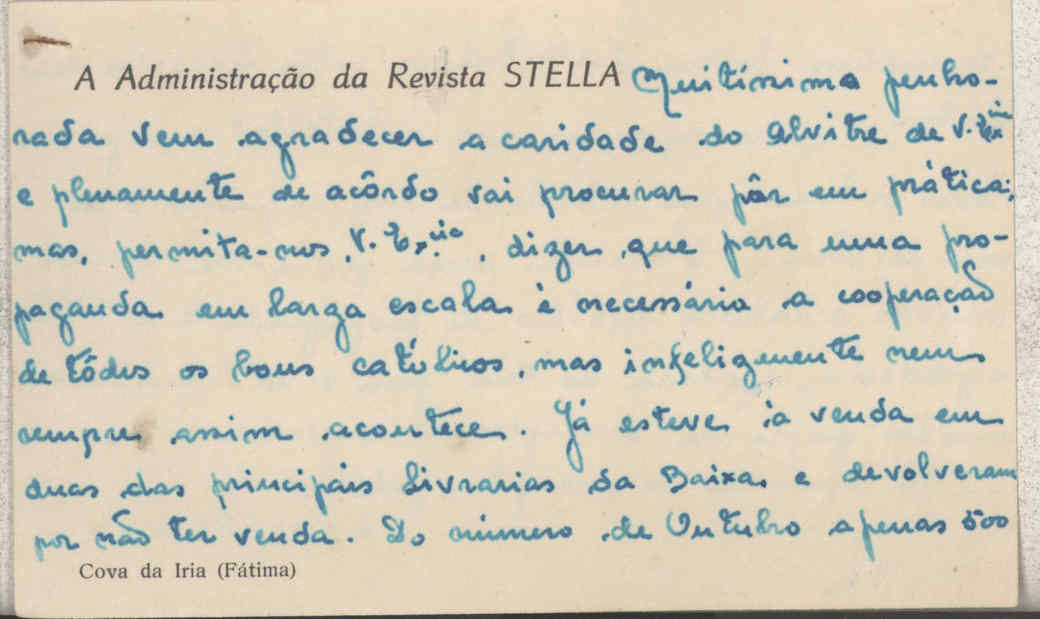 A Administração da Revista STELLA Muitíssimo penho-
rada vem agradecer a caridade do alvitre de V. Ex.cia
e plenamente de acôrdo vai procurar pôr em prática;
mas, permita-nos, V. Ex.cia, dizer, que para uma pro-
paganda em larga escala é necessária a cooperação
de tôdos os bons católicos, mas infelizmente nem
sempre assim acontece. Já esteve à venda em
duas das principais Livrarias da Baixa e devolveram
por não ter venda. Do número de Outubro apenas 500
Cova da Iria (Fátima)